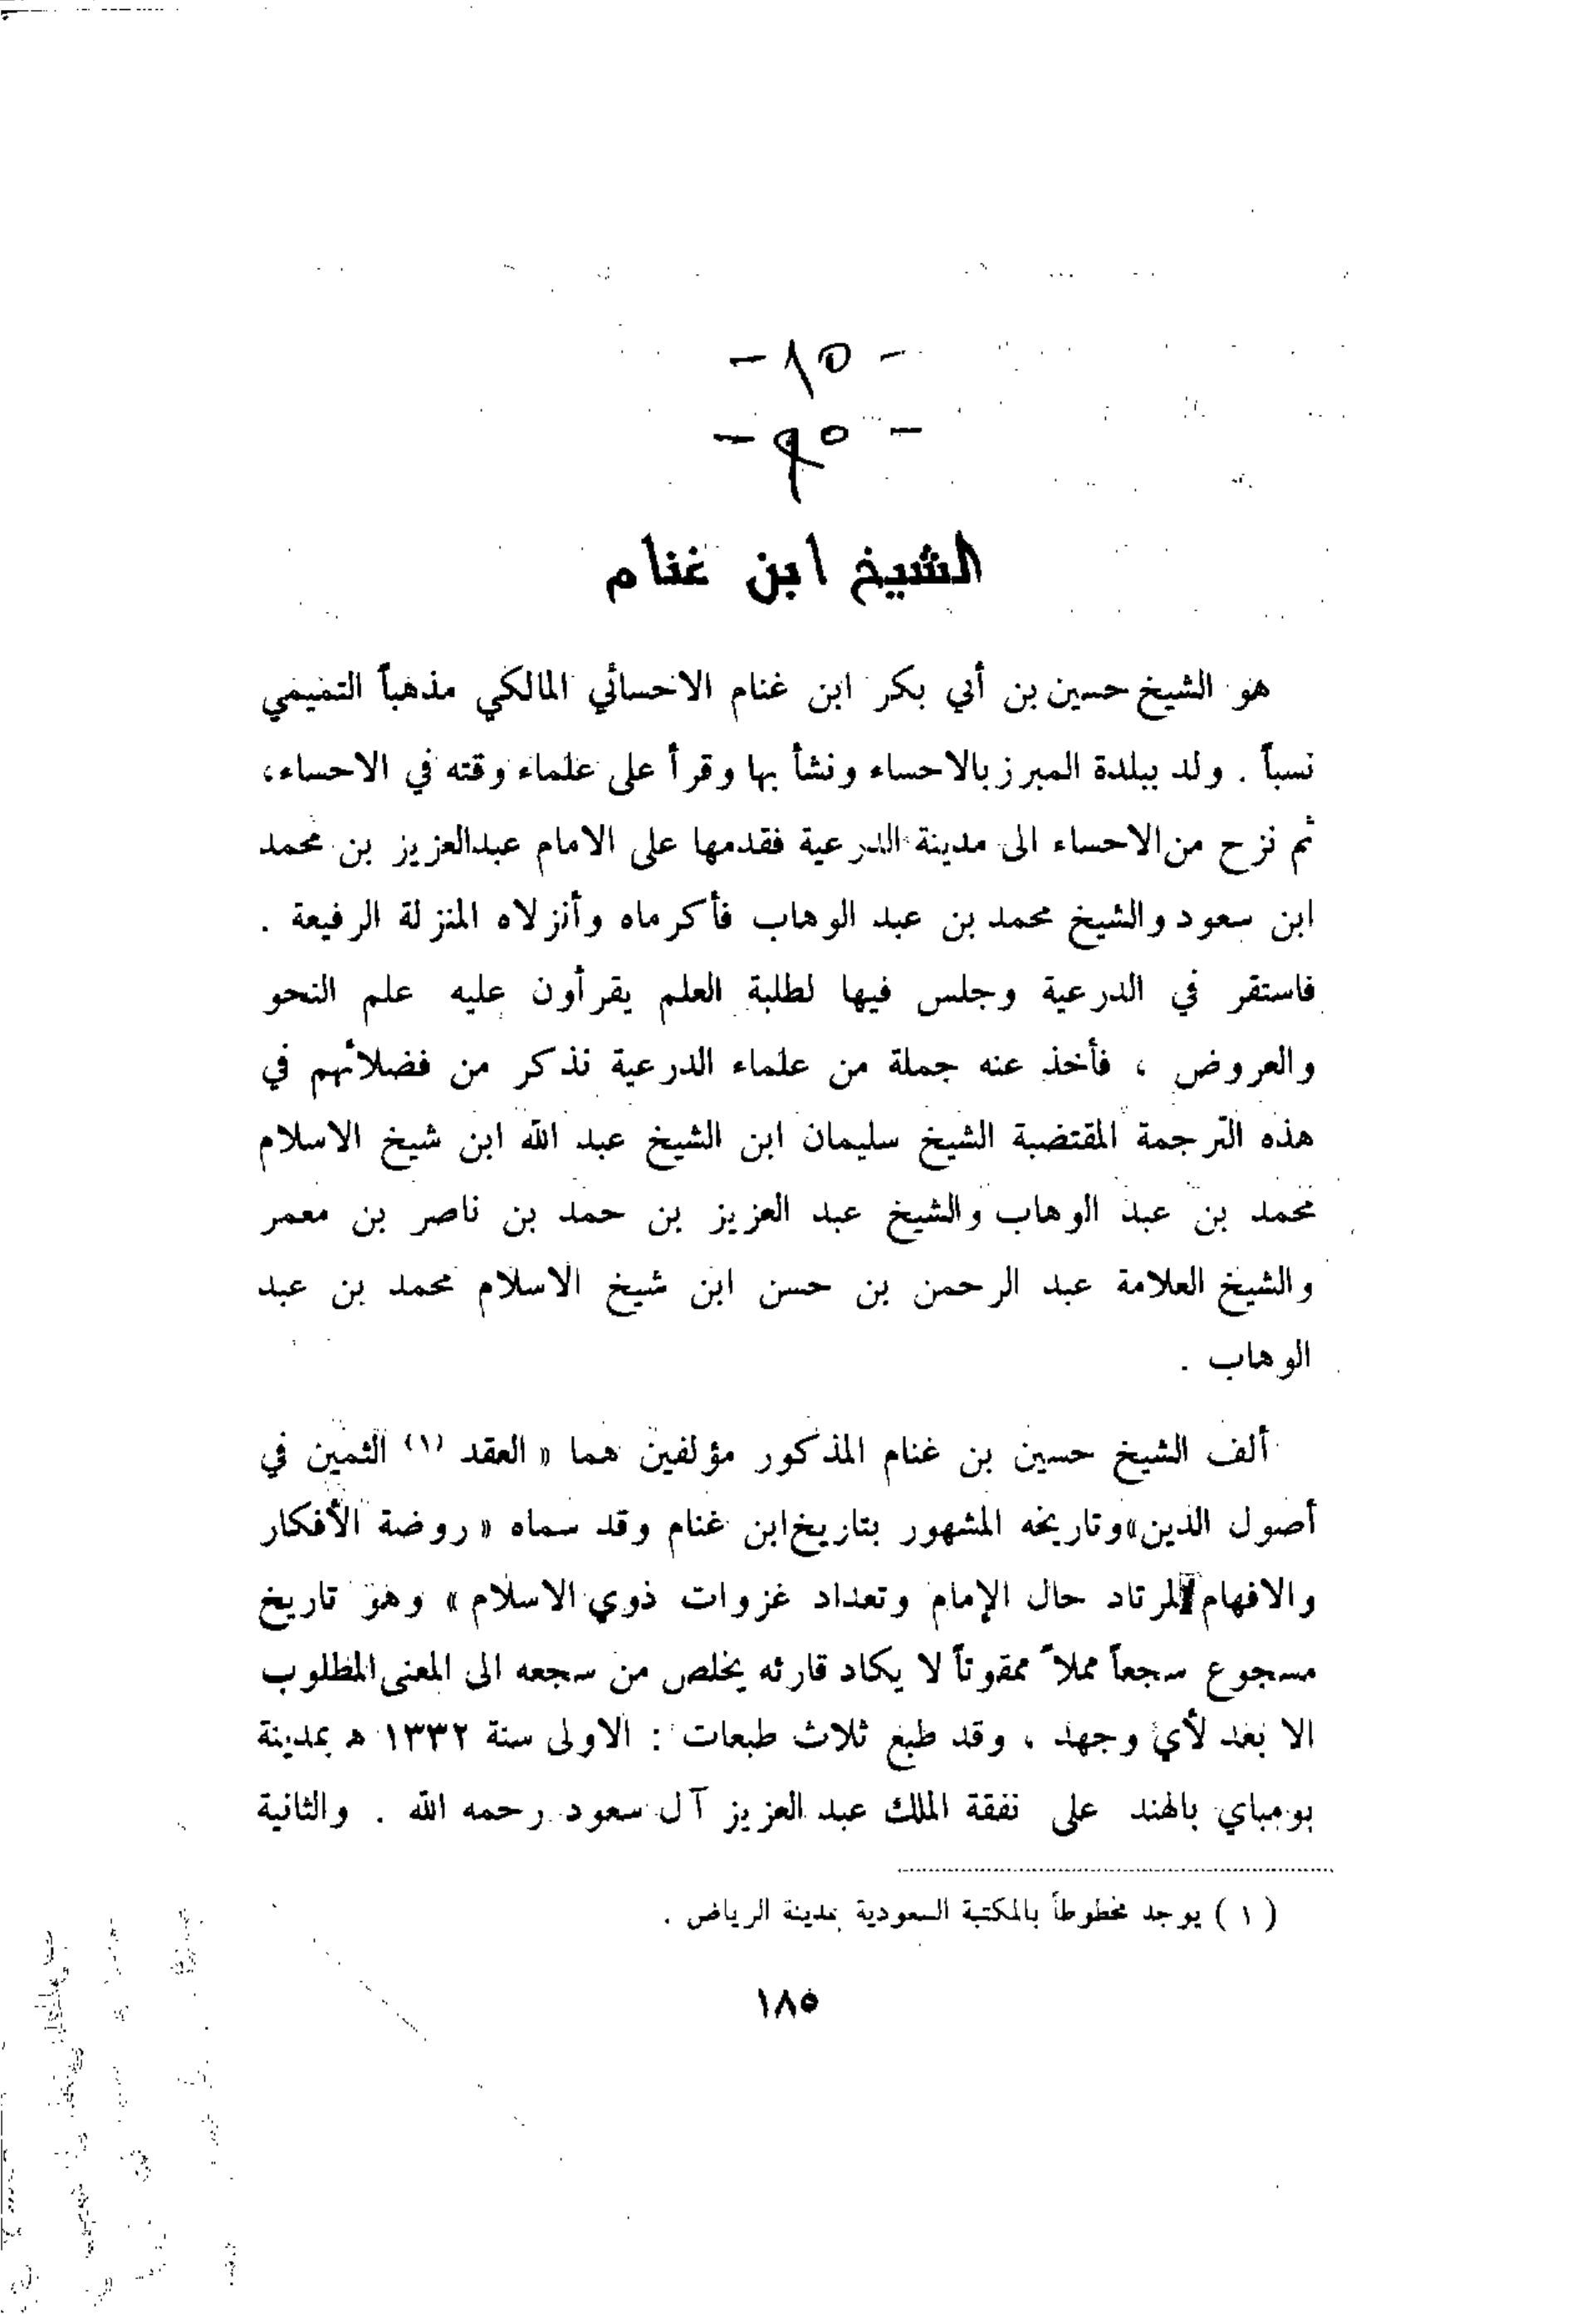 - ١٥ -
الشيخ ابن غنام
هو الشيخ حسين بن أبي بكر ابن غنام الاحسائي المالكي مذهباً التميمي
نسباً . ولد ببلدة المبرز بالاحساء ونشأ بها وقرأ على علماء وقته في الاحساء،
ثم نزح من الاحساء الى مدينة الدرعية فقدمها على الامام عبدالعزيز بن محمد
ابن سعود والشيخ محمد بن عبد الوهاب فأكرماه وأنزلاه المنزلة الرفيعة .
فاستقر في الدرعية وجلس فيها لطلبة العلم يقرأون عليه علم النحو
والعروض ، فأخذ عنه جملة من علماء الدرعية نذكر من فضلائهم في
هذه الترجمة المقتضبة الشيخ سليمان ابن الشيخ عبد الله ابن شيخ الاسلام
محمد بن عبد الوهاب والشيخ عبد العزيز بن حمد بن ناصر بن معمر
والشيخ العلامة عبد الرحمن بن حسن ابن شيخ الاسلام محمد بن عبد
الوهاب .
ألف الشيخ حسين بن غنام المذكور مؤلفين هما « العقد (١) الثمين في
أصول الدين» وتاريخه المشهور بتاريخ ابن غنام وقد سماه « روضة الأفكار
والافهام لمرتاد حال الإمام وتعداد غزوات ذوي الاسلام » وهو تاريخ
مسجوع سجعاً مملاً ممقوتاً لا يكاد قارئه يخلص من سجعه الى المعنى المطلوب
الا بعد لأي وجهد ، وقد طبع ثلاث طبعات : الاولى سنة ١٣٣٢ ه بمدينة
بومباي بالهند على نفقة الملك عبد العزيز آل سعود رحمه الله . والثانية
( ١ ) يوجد مخطوطاً بالمكتبة السعودية بمدينة الرياض .
١٨٥